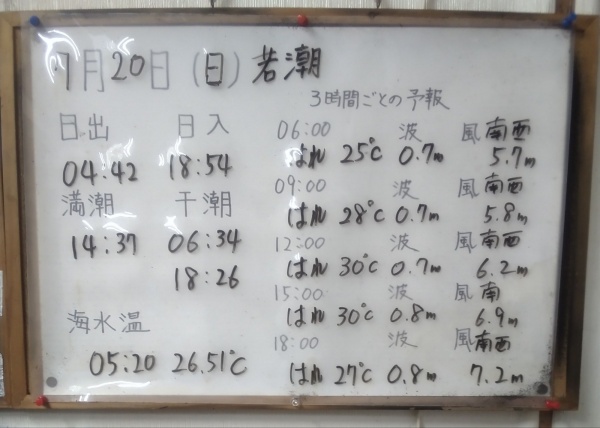 7月20日(日)若潮
3時間ごとの予報
日出 日入
04:42 18:54
満潮 干潮
14:37 06:34
18:26
海水温
05:20 26.51℃
06:00 波 風南西
はれ 25℃ 0.7m 5.7m
09:00 波 風南西
はれ 28℃ 0.7m 5.8m
12:00 波 風南西
はれ 30℃ 0.7m 6.2m
15:00 波 風南
はれ 30℃ 0.8m 6.9m
18:00 波 風南西
はれ 27℃ 0.8m 7.2m